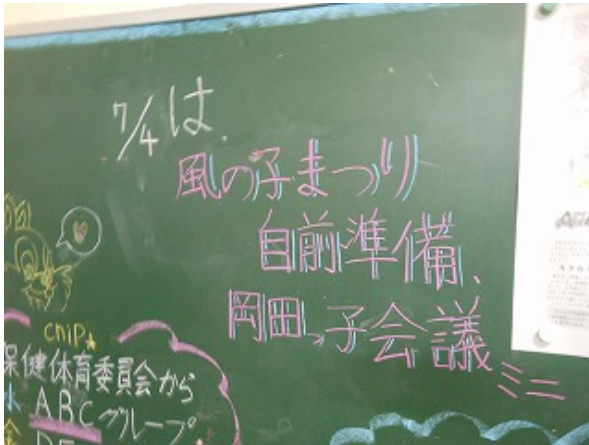 7/4は
風の子まつり
自前準備、
岡田っ子会議ミニ
chip
保健体育委員会から
水 ABCグループ
金 DE